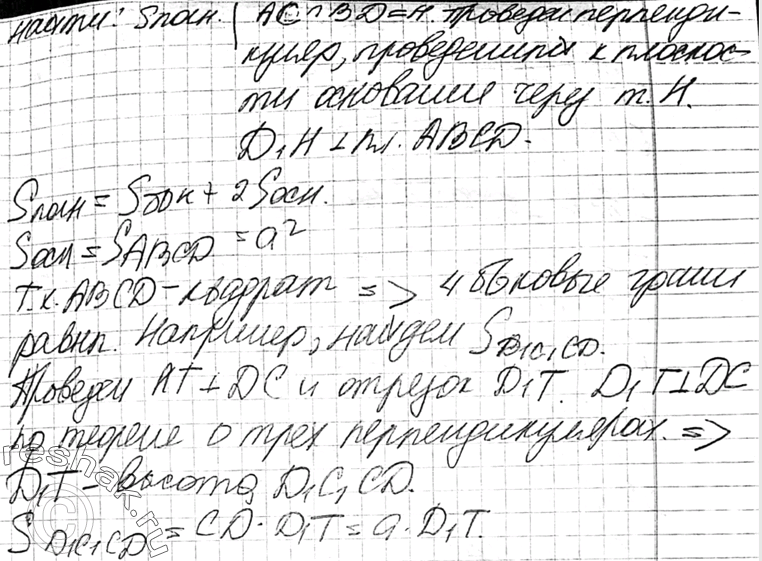 найти: Sполн. | AC∩BD=H. Проведем перпенди-
куляр, проведенный к плоскос-
ти основание через т. H.
D₁H⊥пл. ABCD.
Sполн = Sбок + 2Sосн.
Sосн = SABCD = a²
т.к. ABCD-квадрат => 4 боковые грани
равны. Например, найдем SD₁C₁CD.
Проведем HT⊥DC и отрезок D₁T. D₁T⊥DC
по теореме о трех перпендикулярах. =>
D₁T-высота D₁C₁CD.
SD₁C₁CD = CD·D₁T = a·D₁T.
reshak.ru